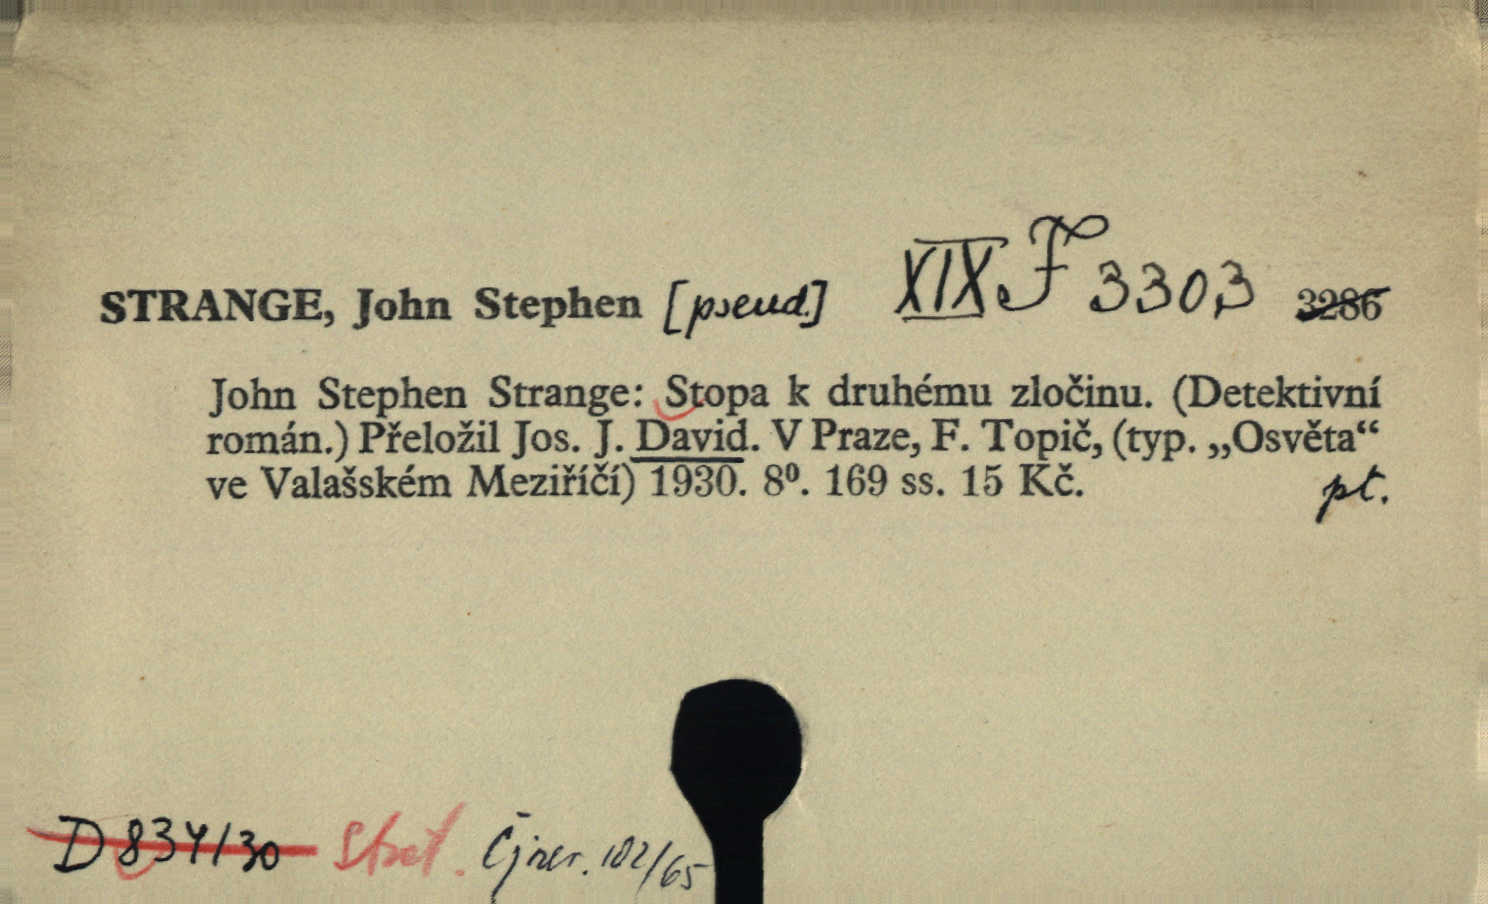 STRANGE, John Stephen [pseud.] XIX F 3303 3286
John Stephen Strange: Stopa k druhému zločinu. (Detektivní
román.) Přeložil Jos. J. David. V Praze, F. Topič, (typ. „Osvěta“
ve Valašském Meziříčí) 1930. 8⁰. 169 ss. 15 Kč. pt.
D 834/30 102/65